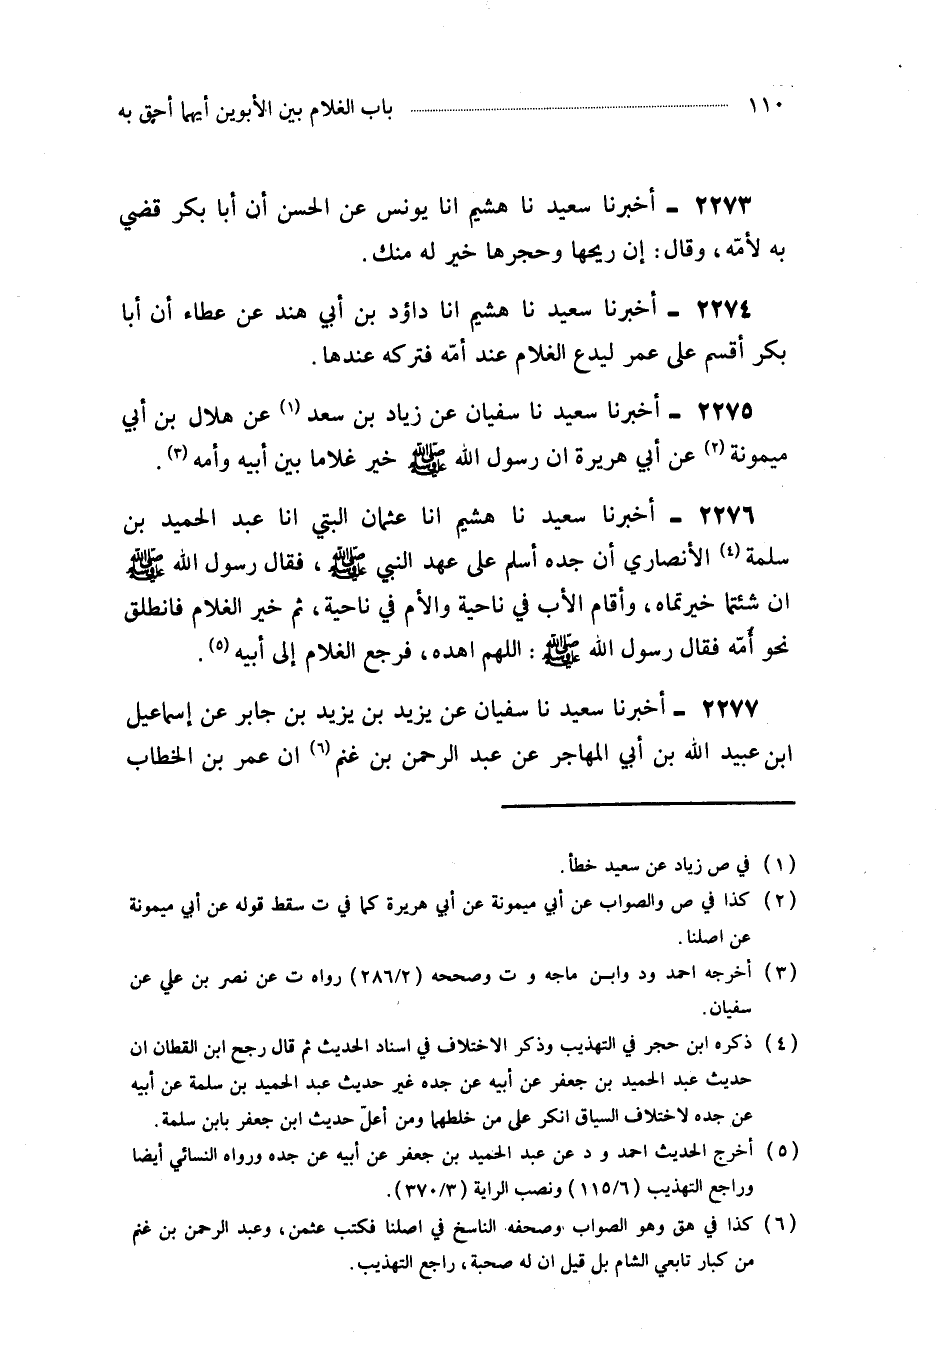 ١١٠ ........ باب الغلام بين الأبوين أيهما أحق به
٢٢٧٣ ـ أخبرنا سعيد نا هشيم انا يونس عن الحسن أن أبا بكر قضي
به لأمّه، وقال: إن ريحها وحجرها خير له منك.
٢٢٧٤ ـ أخبرنا سعيد نا هشيم انا داؤد بن أبي هند عن عطاء أن أبا
بكر أقسم على عمر ليدع الغلام عند أمّه فتركه عندها.
٢٢٧٥ ـ أخبرنا سعيد نا سفيان عن زياد بن سعد (١) عن هلال بن أبي
ميمونة (٢) عن أبي هريرة ان رسول الله ﷺ خير غلاما بين أبيه وأمه (٣).
٢٢٧٦ ـ أخبرنا سعيد نا هشيم انا عثمان البتي انا عبد الحميد بن
سلمة (٤) الأنصاري أن جده أسلم على عهد النبي ﷺ، فقال رسول الله ﷺ
ان شئتما خيرتماه، وأقام الأب في ناحية والأم في ناحية، ثم خير الغلام فانطلق
نحو أُمّه فقال رسول الله ﷺ: اللهم اهده، فرجع الغلام إلى أبيه (٥).
٢٢٧٧ ـ أخبرنا سعيد نا سفيان عن يزيد بن يزيد بن جابر عن إسماعيل
ابن عبيد الله بن أبي المهاجر عن عبد الرحمن بن غنم (٦) ان عمر بن الخطاب
(١) في ص زياد عن سعيد خطأ.
(٢) كذا في ص والصواب عن أبي ميمونة عن أبي هريرة كما في ت سقط قوله عن أبي ميمونة
عن اصلنا.
(٣) أخرجه احمد ود وابن ماجه و ت وصححه (٢٨٦/٢) رواه ت عن نصر بن علي عن
سفيان.
(٤) ذكره ابن حجر في التهذيب وذكر الاختلاف في اسناد الحديث ثم قال رجح ابن القطان ان
حديث عبد الحميد بن جعفر عن أبيه عن جده غير حديث عبد الحميد بن سلمة عن أبيه
عن جده لاختلاف السياق انكر على من خلطهما ومن أعلّ حديث ابن جعفر بابن سلمة.
(٥) أخرج الحديث احمد و د عن عبد الحميد بن جعفر عن أبيه عن جده ورواه النسائي أيضا
وراجع التهذيب (١١٥/٦) ونصب الراية (٣٧٠/٣).
(٦) كذا في هق وهو الصواب وصحفه الناسخ في اصلنا فكتب عثمن، وعبد الرحمن بن غنم
من كبار تابعي الشام بل قيل ان له صحبة، راجع التهذيب.